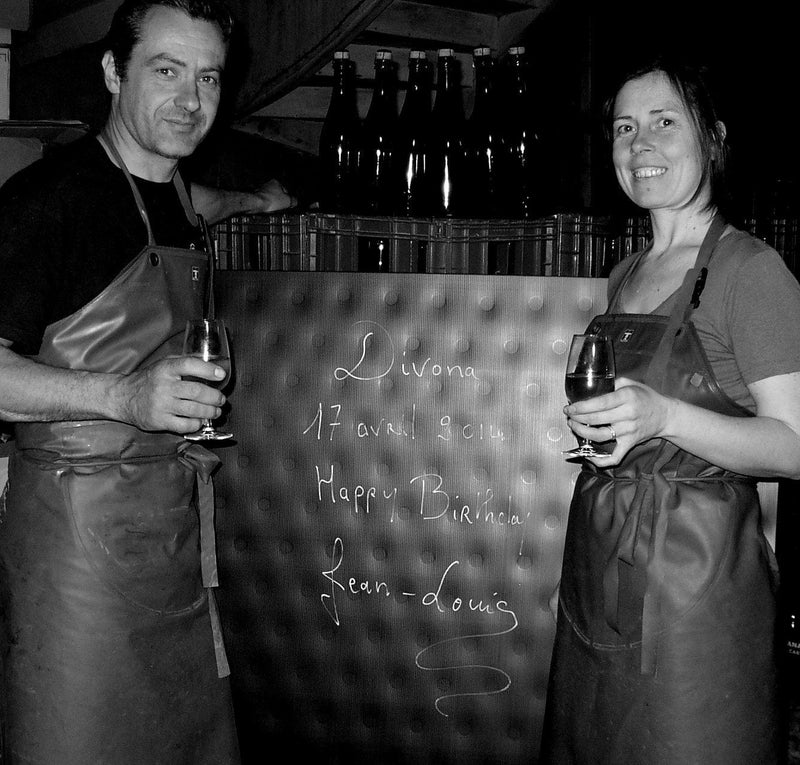 Divona
17 avril 2014
Happy Birthday
Jean-Louis